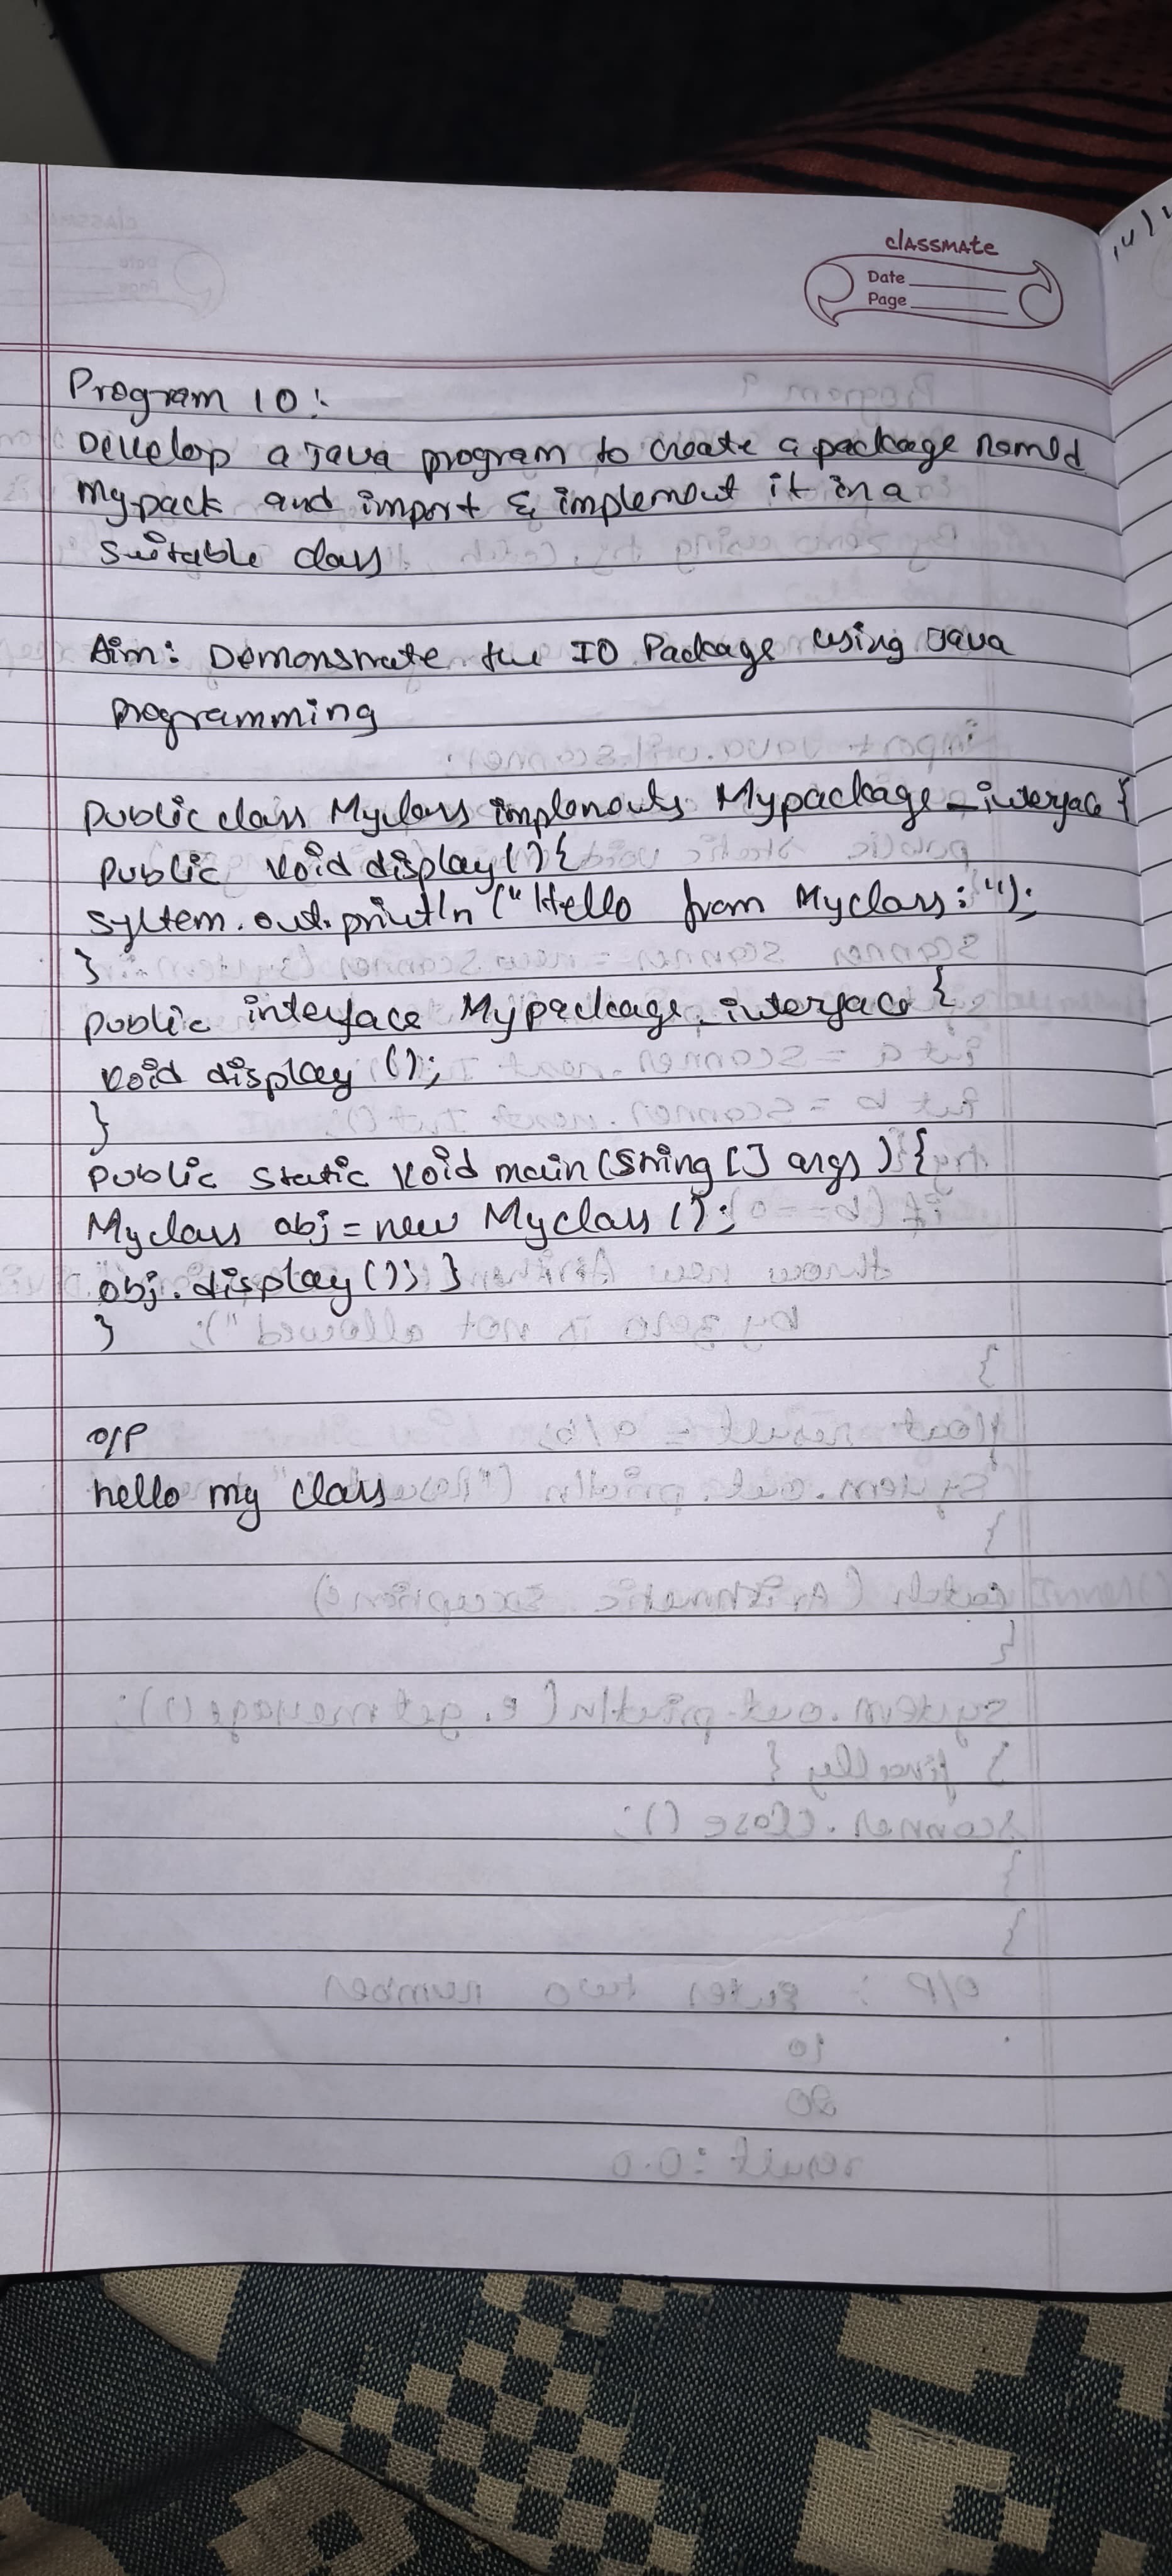 classmate
Date
Page
Program 10:
Develop a Java program to create a package named
mypack and import & implement it in a
suitable class
Aim: Demonstrate the IO Package using Java
programming
public class Myclass implements Mypackage_interface {
public void display () {
system.out.println ("Hello from Myclass: ");
}
public interface Mypackage_interface {
void display ();
}
public static void main (String [] args ) {
Myclass obj = new Myclass ();
obj. display (); }
}
O/P
hello my class